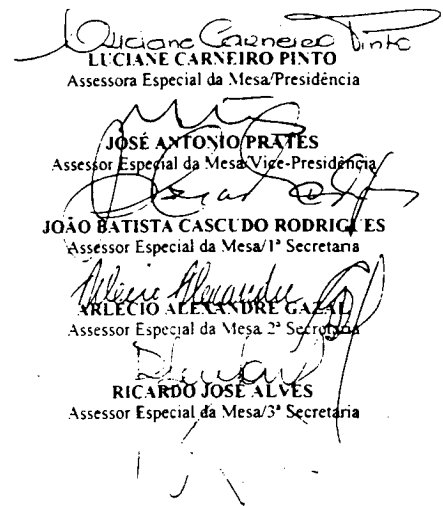 Luciane Carneiro Pinto
LUCIANE CARNEIRO PINTO
Assessora Especial da Mesa/Presidência
JOSÉ ANTONIO PRATES
Assessor Especial da Mesa/Vice-Presidência
JOÃO BATISTA CASCUDO RODRIGUES
Assessor Especial da Mesa/1ª Secretaria
Arlecio Alexandre
ARLÉCIO ALEXANDRE GAZAL
Assessor Especial da Mesa 2ª Secretaria
RICARDO JOSÉ ALVES
Assessor Especial da Mesa/3ª Secretaria